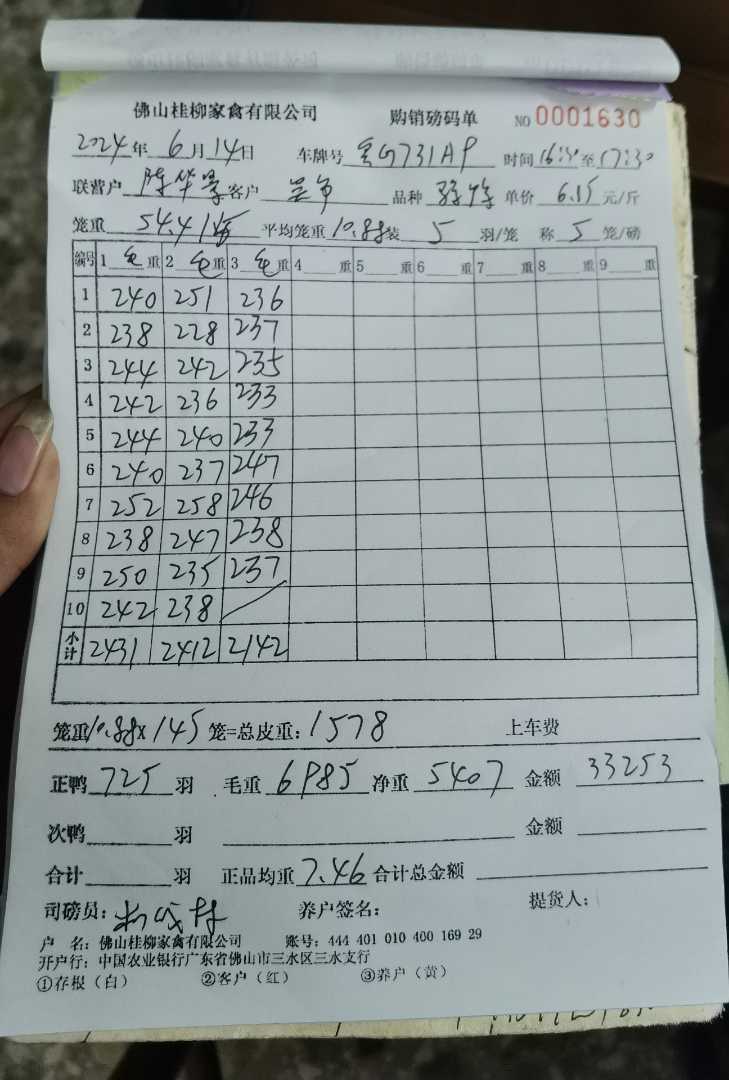 佛山桂柳家禽有限公司 购销磅码单 NO 0001630
2024年 6月14日 车牌号 G731A9 时间 至17:30
联营户 陈华 客户 品种 单价 6.15 元/斤
笼重 54.4/5 平均笼重10.88装 5 羽/笼 称 5 笼/磅
编号 1 毛 重 2 毛 重 3 毛 重 4 重 5 重 6 重 7 重 8 重 9 重
1 240 251 236
2 238 228 237
3 244 242 235
4 242 236 233
5 244 240 233
6 240 237 247
7 252 258 246
8 238 247 238
9 250 235 237
10 242 238
小计 2431 2412 2142
笼重10.88x 145 笼=总皮重:1578 上车费
正鸭 725 羽 毛重 6985 净重 5407 金额 33253
次鸭 羽 金额
合计 羽 正品均重 7.46 合计总金额
司磅员: 养户签名: 提货人:
户 名: 佛山桂柳家禽有限公司 账号: 444 401 010 400 169 29
开户行: 中国农业银行广东省佛山市三水区三水支行
①存根(白) ②客户(红) ③养户(黄)